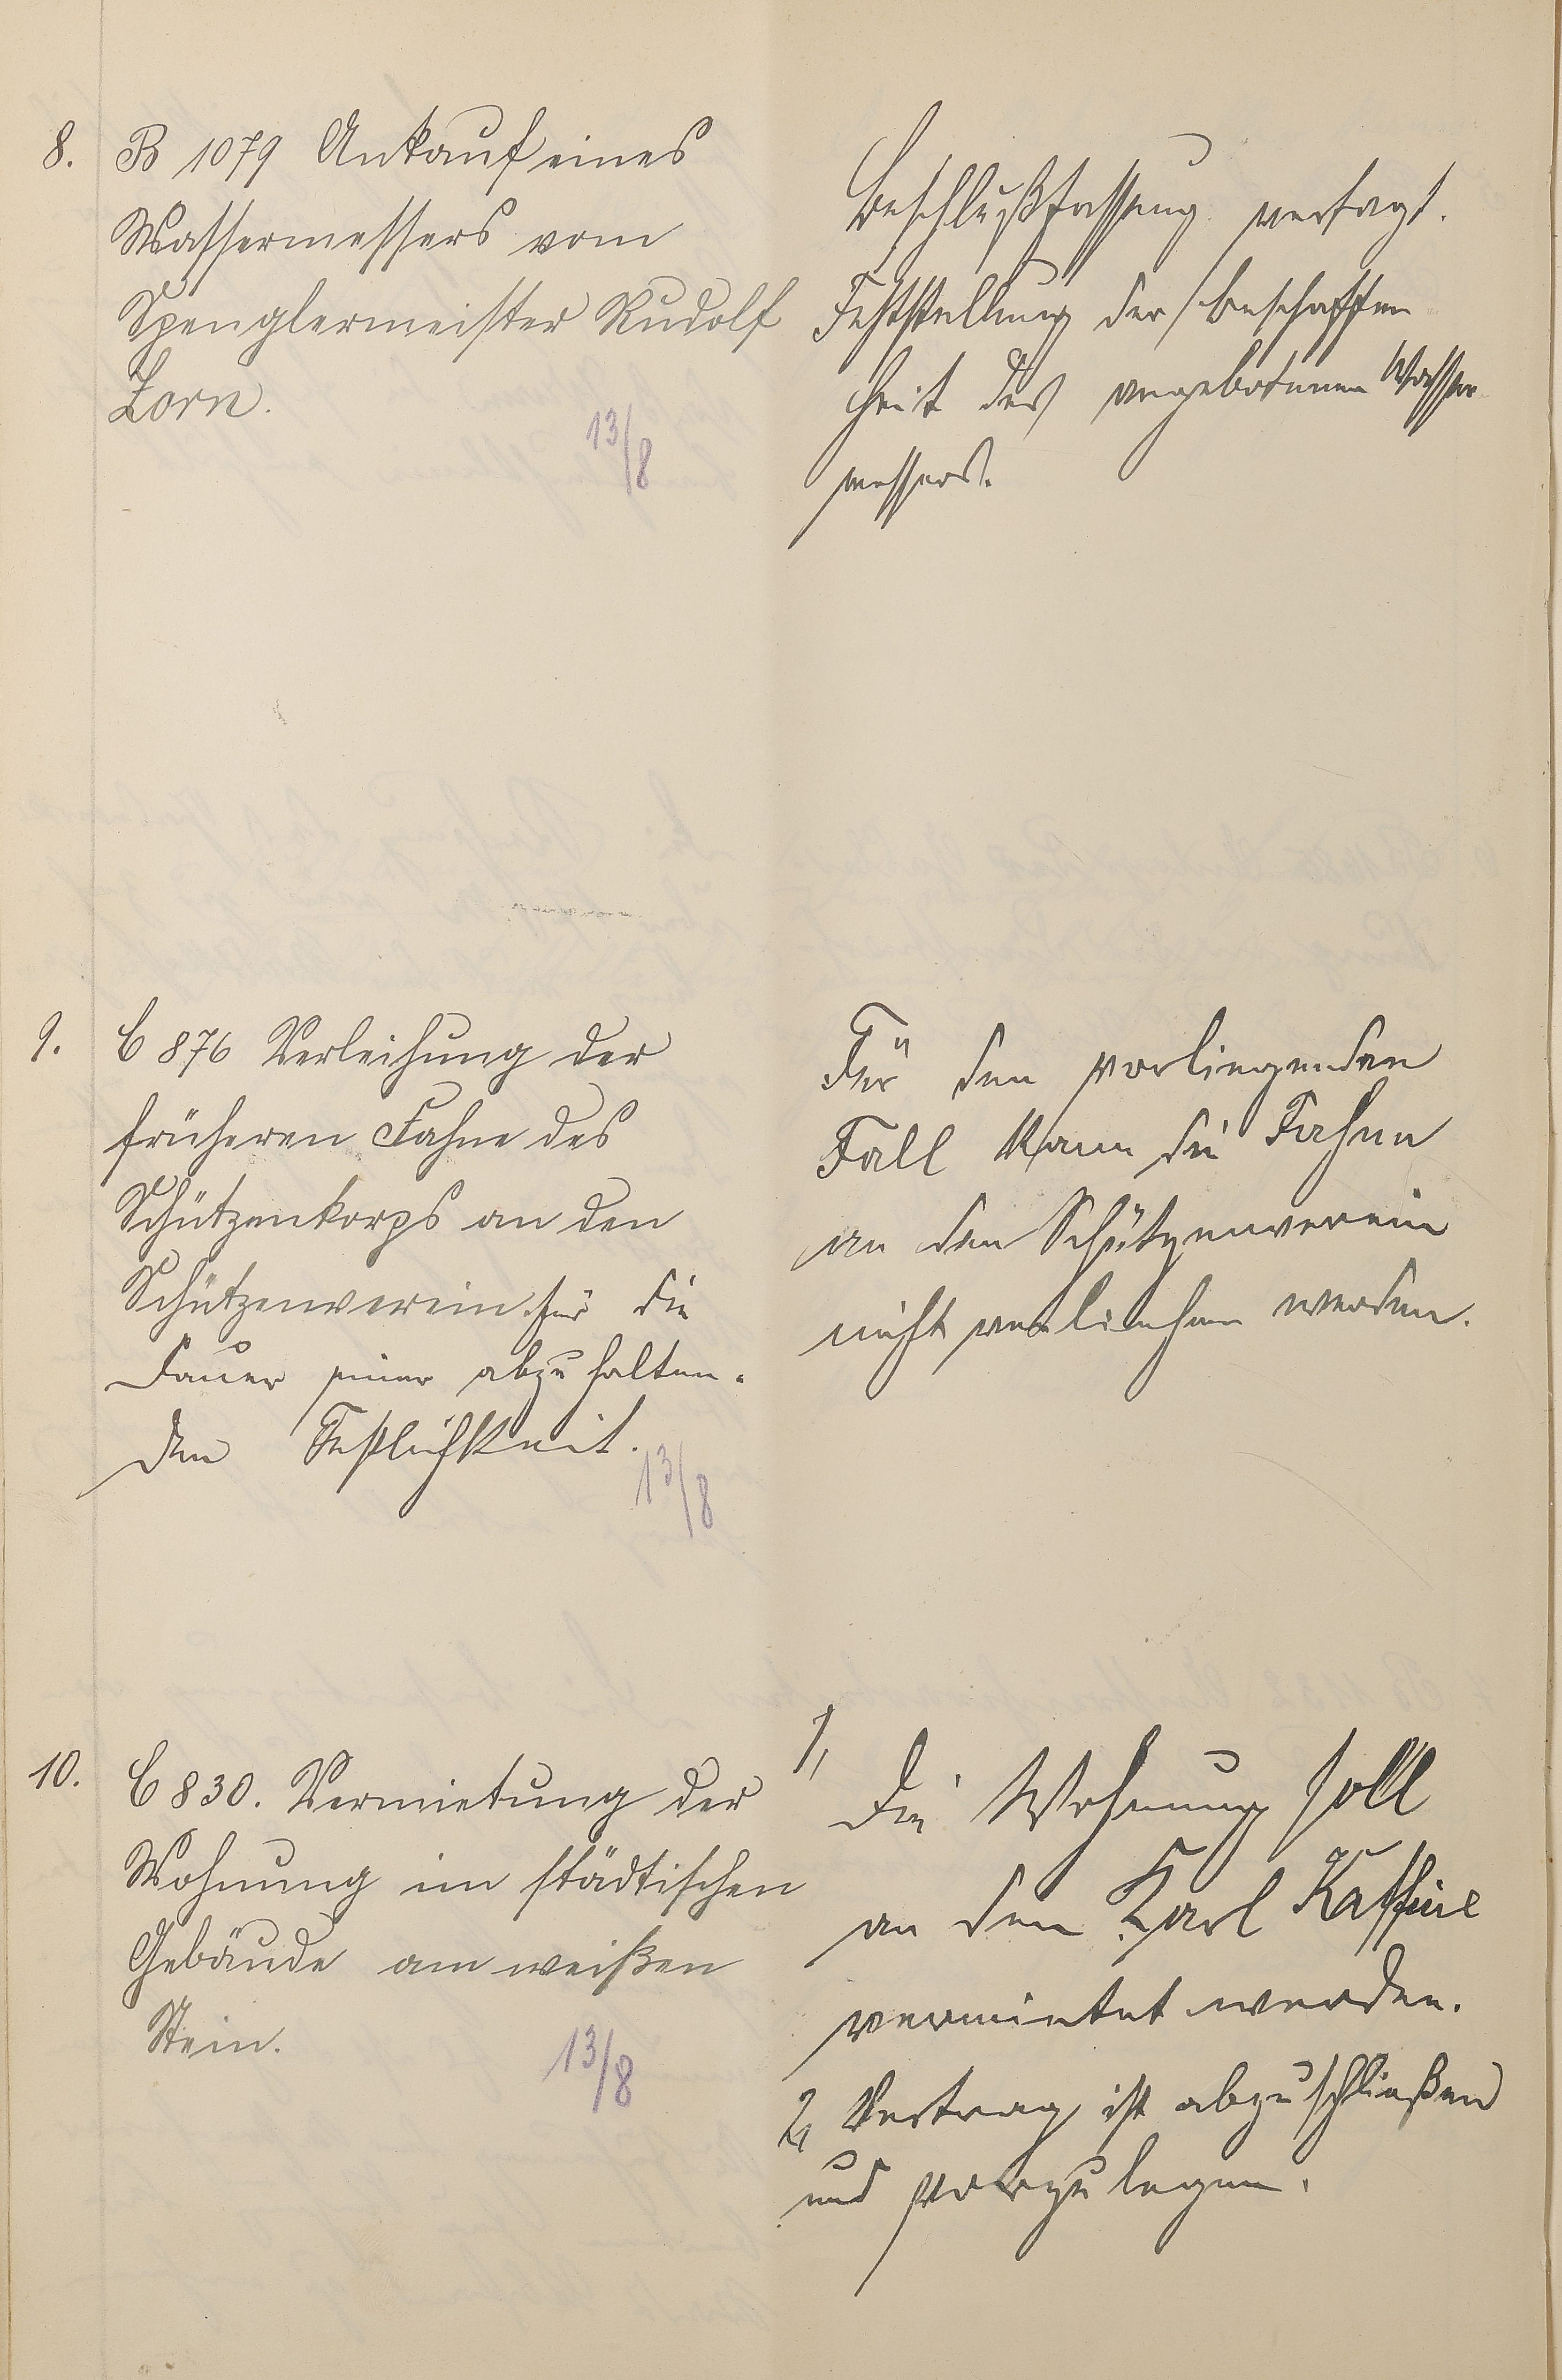 8.
B 1079 Ankauf eines
Wassermessers vom
Spenglermeister Rudolf
Zorn.
13/8
Beschlußfassung vertagt.
Feststellung der Beschaffen
heit des angebotenen Wasser
messers.
9.
C 876 Verleihung der
früheren Fahne des
Schützenkorps an den
Schützenverein für die
Dauer einer abzuhalten-
den Festlichkeit.
13/8
Für den vorliegenden
Fall kann die Fahne
an den Schützenverein
nicht verliehen werden.
10.
C 830. Vermietung der
Wohnung im städtischen
Gebäude am weißen
Stein.
13/8
1,
Die Wohnung soll
an den Karl
vermietet werden.
2, Vertrag ist abzuschließen
und vorzulegen.